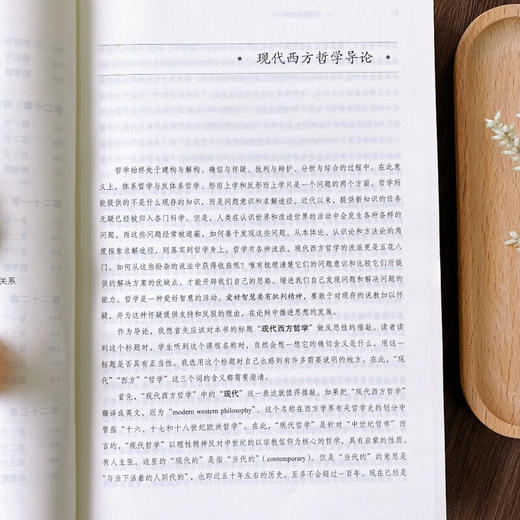 现代西方哲学导论
哲学始终处于建构与解构、确信与怀疑、批判与辩护、分析与综合的过程中。在此意
义上，体系哲学与反体系哲学、形而上学和反形而上学只是一个问题的两个方面。哲学所
能提供的不是什么现存的知识，而是问题意识和求解途径。近代以来，提供新知识的任务
无疑已经被归入各门科学。但是，人类在认识世界和改造世界的活动中会发生各种各样的
问题，而这些问题经常被遮蔽，如何善于发现这些问题，从本体论、认识论和方法论的角
度探索求解途径，则落实到哲学身上。哲学有各种流派，现代西方哲学的流派更是五花八
门。如何从这些纷杂的说法中获得收益呢？唯有梳理清楚它们的问题意识和比较它们所提
供的解决方案的优缺点，才能打开我们自己的思路，增进我们自己发现问题和解决问题的
能力。哲学是一种爱好智慧的活动。爱好智慧要有批判精神，要敢于对现存的说教加以怀
疑，并为这种怀疑提供支持和反驳的理由，在论辩中推进思想的发展。
作为导论，我想首先应该对本书的标题“现代西方哲学”做反思性的推敲。读者读
到这个标题时，学生听到这个课程名称时，自然会想一想它的确切含义是什么，用这一
标题是否具有正当性。我选用这个标题时自己也感到有许多需要说明的地方。在此，“现
代”“西方”“哲学”这三个词的含义都需要澄清。
首先，“现代西方哲学”中的“现代”这一表达就值得推敲。如果把“现代西方哲学”
翻译成英文，则为“modern western philosophy”。这个名称在西方学界有关哲学史的划分中
曾指“十六、十七和十八世纪欧洲哲学”。在此，“现代哲学”是针对“中世纪哲学”而
言的，“现代哲学”以理性精神反对中世纪的以宗教信仰为核心的哲学，具有启蒙的性质。
有人主张，这里的“现代的”是指“当代的”（contemporary）。但是“当代的”的意思是
“与当下活着的人同代的”，也即近五十年左右的历史，至多不会超过一百年。现在已经是
关系